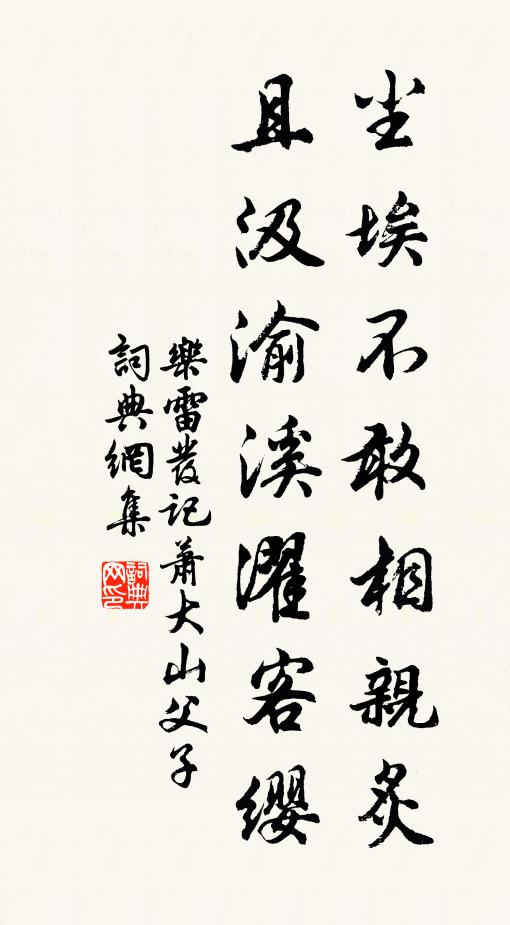 坐埃不敢相親炙
且汲渝溪濯客纓
樂雷發記蕭大山父子
詞典網集
詞典网印